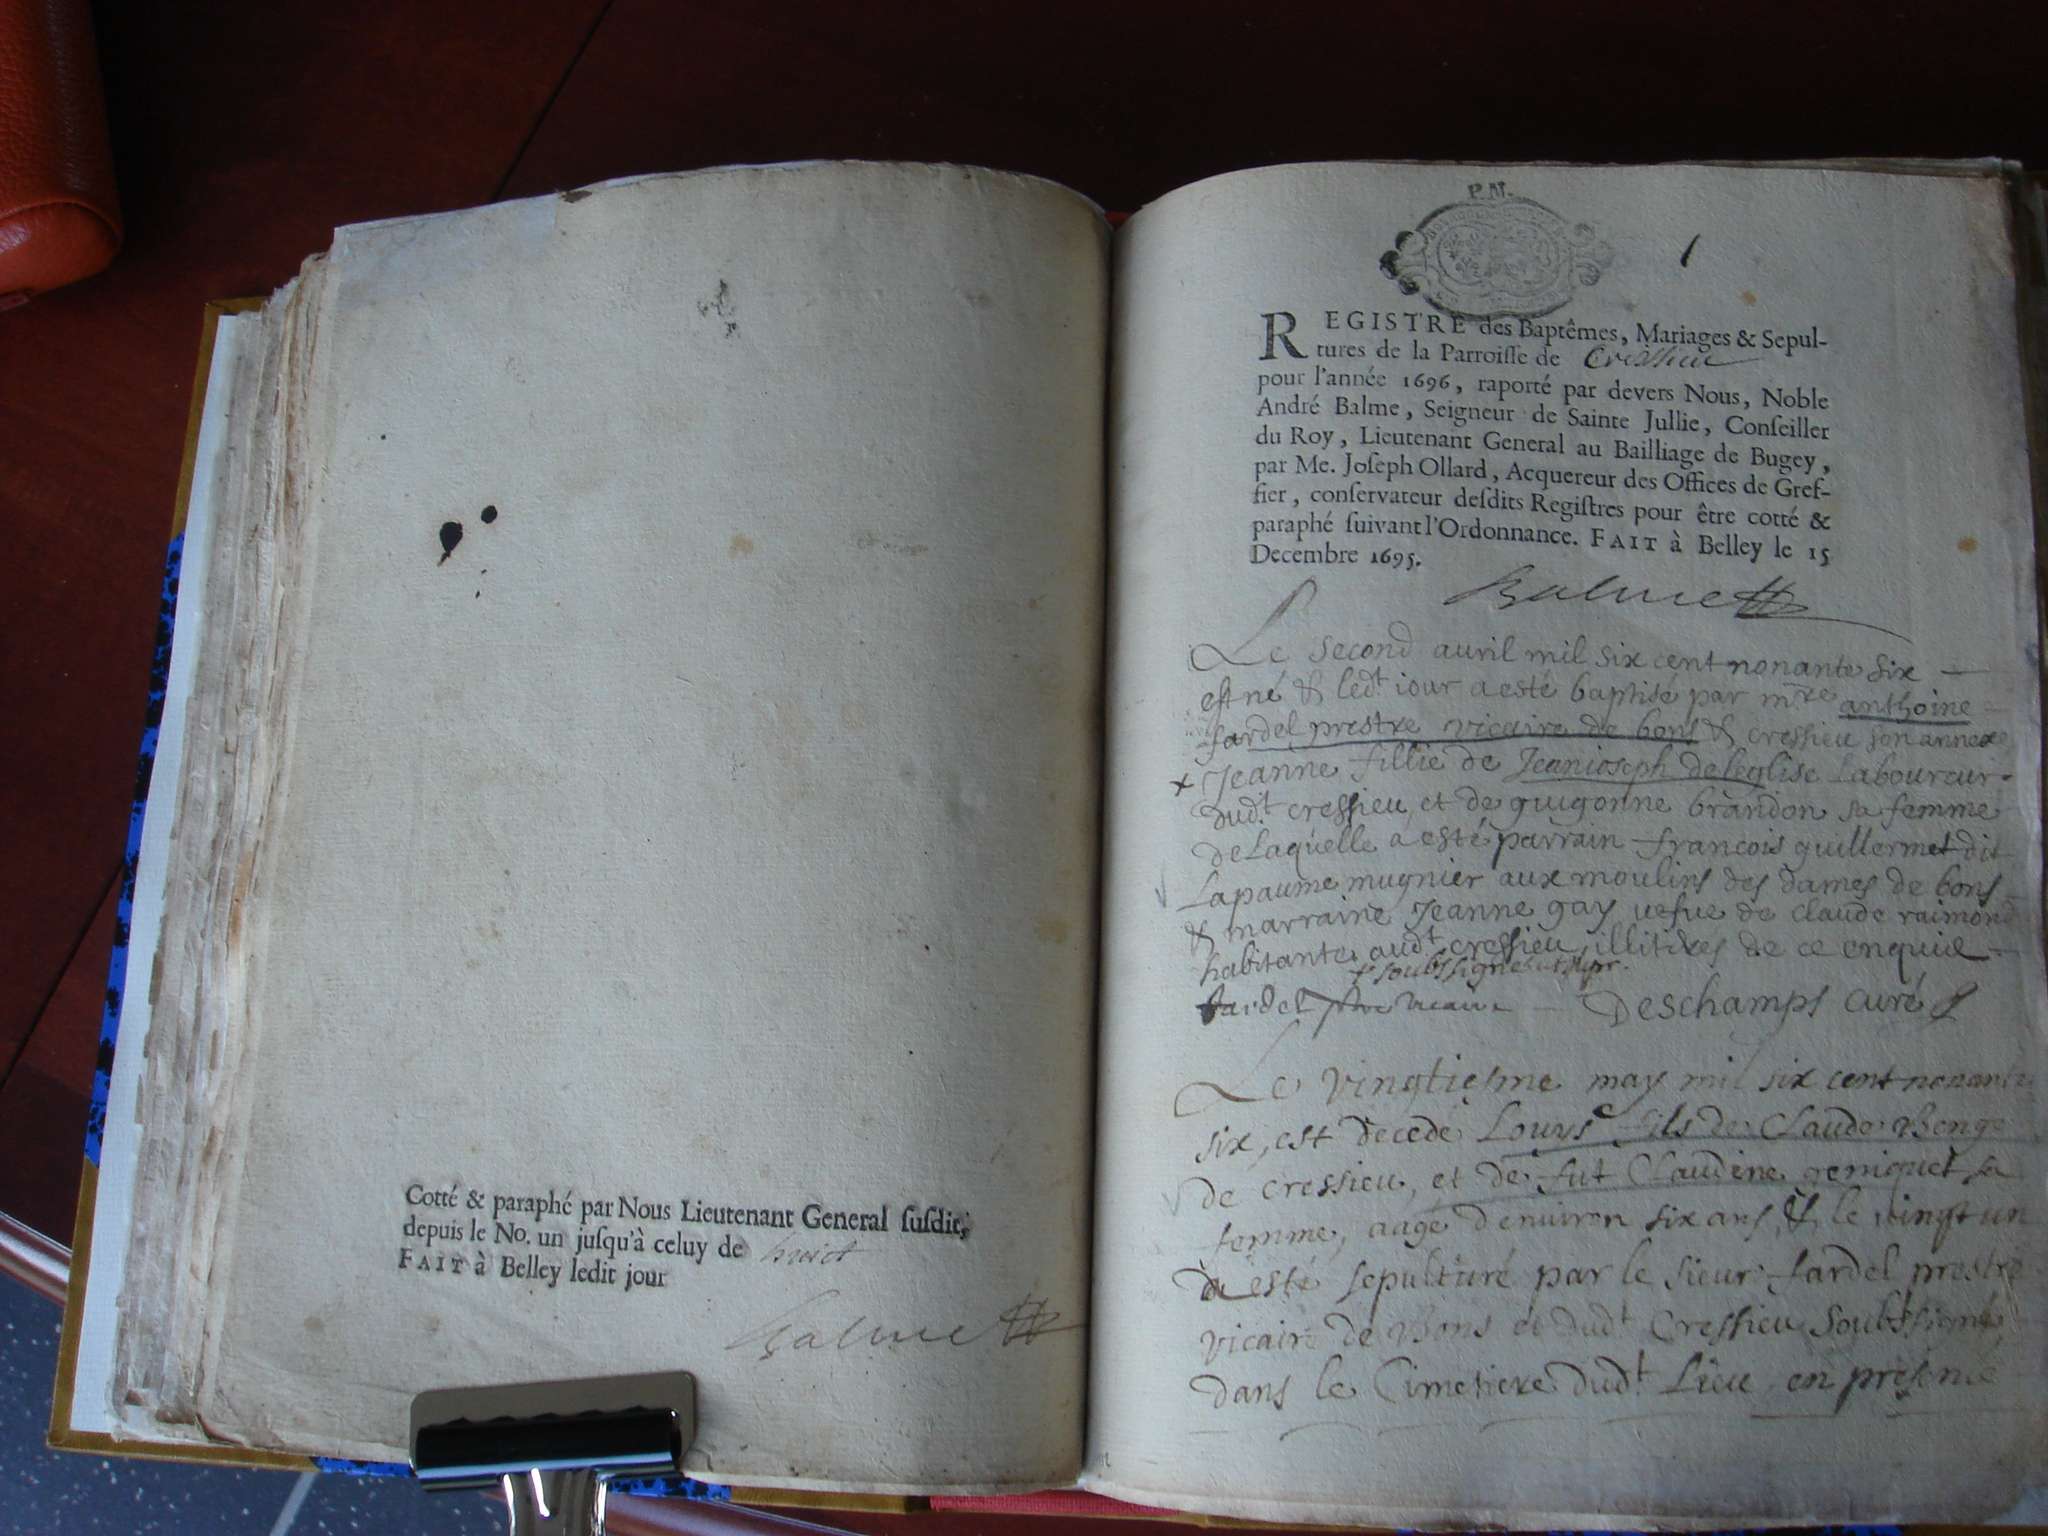 Cotté & paraphé par Nous Lieutenant General ſuſdit,
depuis le No. un juſqu'à celuy de huict
FAIT à Belley ledit jour
Balme
P. M.
1
REGISTRE des Baptêmes, Mariages & Sepul-
tures de la Parroiſſe de Cressieu
pour l'année 1696, raporté par devers Nous, Noble
André Balme, Seigneur de Sainte Jullie, Conſeiller
du Roy, Lieutenant General au Bailliage de Bugey,
par Me. Joſeph Ollard, Acquereur des Offices de Gref-
fier, conſervateur deſdits Regiſtres pour être cotté &
paraphé ſuivant l'Ordonnance. FAIT à Belley le 15
Decembre 1695.
Balme
Le second auril mil six cent nonante six
est né & ledt iour a esté baptisé par mre anthoine
fardel prestre vicaire de bons & cressieu son annexe
+ Jeanne fillie de Jeanioseph deleglise Laboureur
dudt cressieu, et de guigonne brandon sa femme
de Laquelle a esté parrain francois guillermet dit
Lapaume mugnier aux moulins des dames de bons
& marraine Jeanne gay uefue de claude raimond
habitante audt cressieu, illitixes de ce enquie
+ soubssigne
fardel ptre vicaire Deschamps curé
Le vingtiesme may mil six cent nonante
six, est decedé Louys fils de Claude Benge
de cressieu, et de fut Claudine geniquet sa
femme, aagé d'enuiron six ans, & le vingt un
a esté sepulturé par le sieur fardel prestre
vicaire de Bons et dudt Cressieu soubssigné
dans le Cimetiere dudt Lieu, en presence